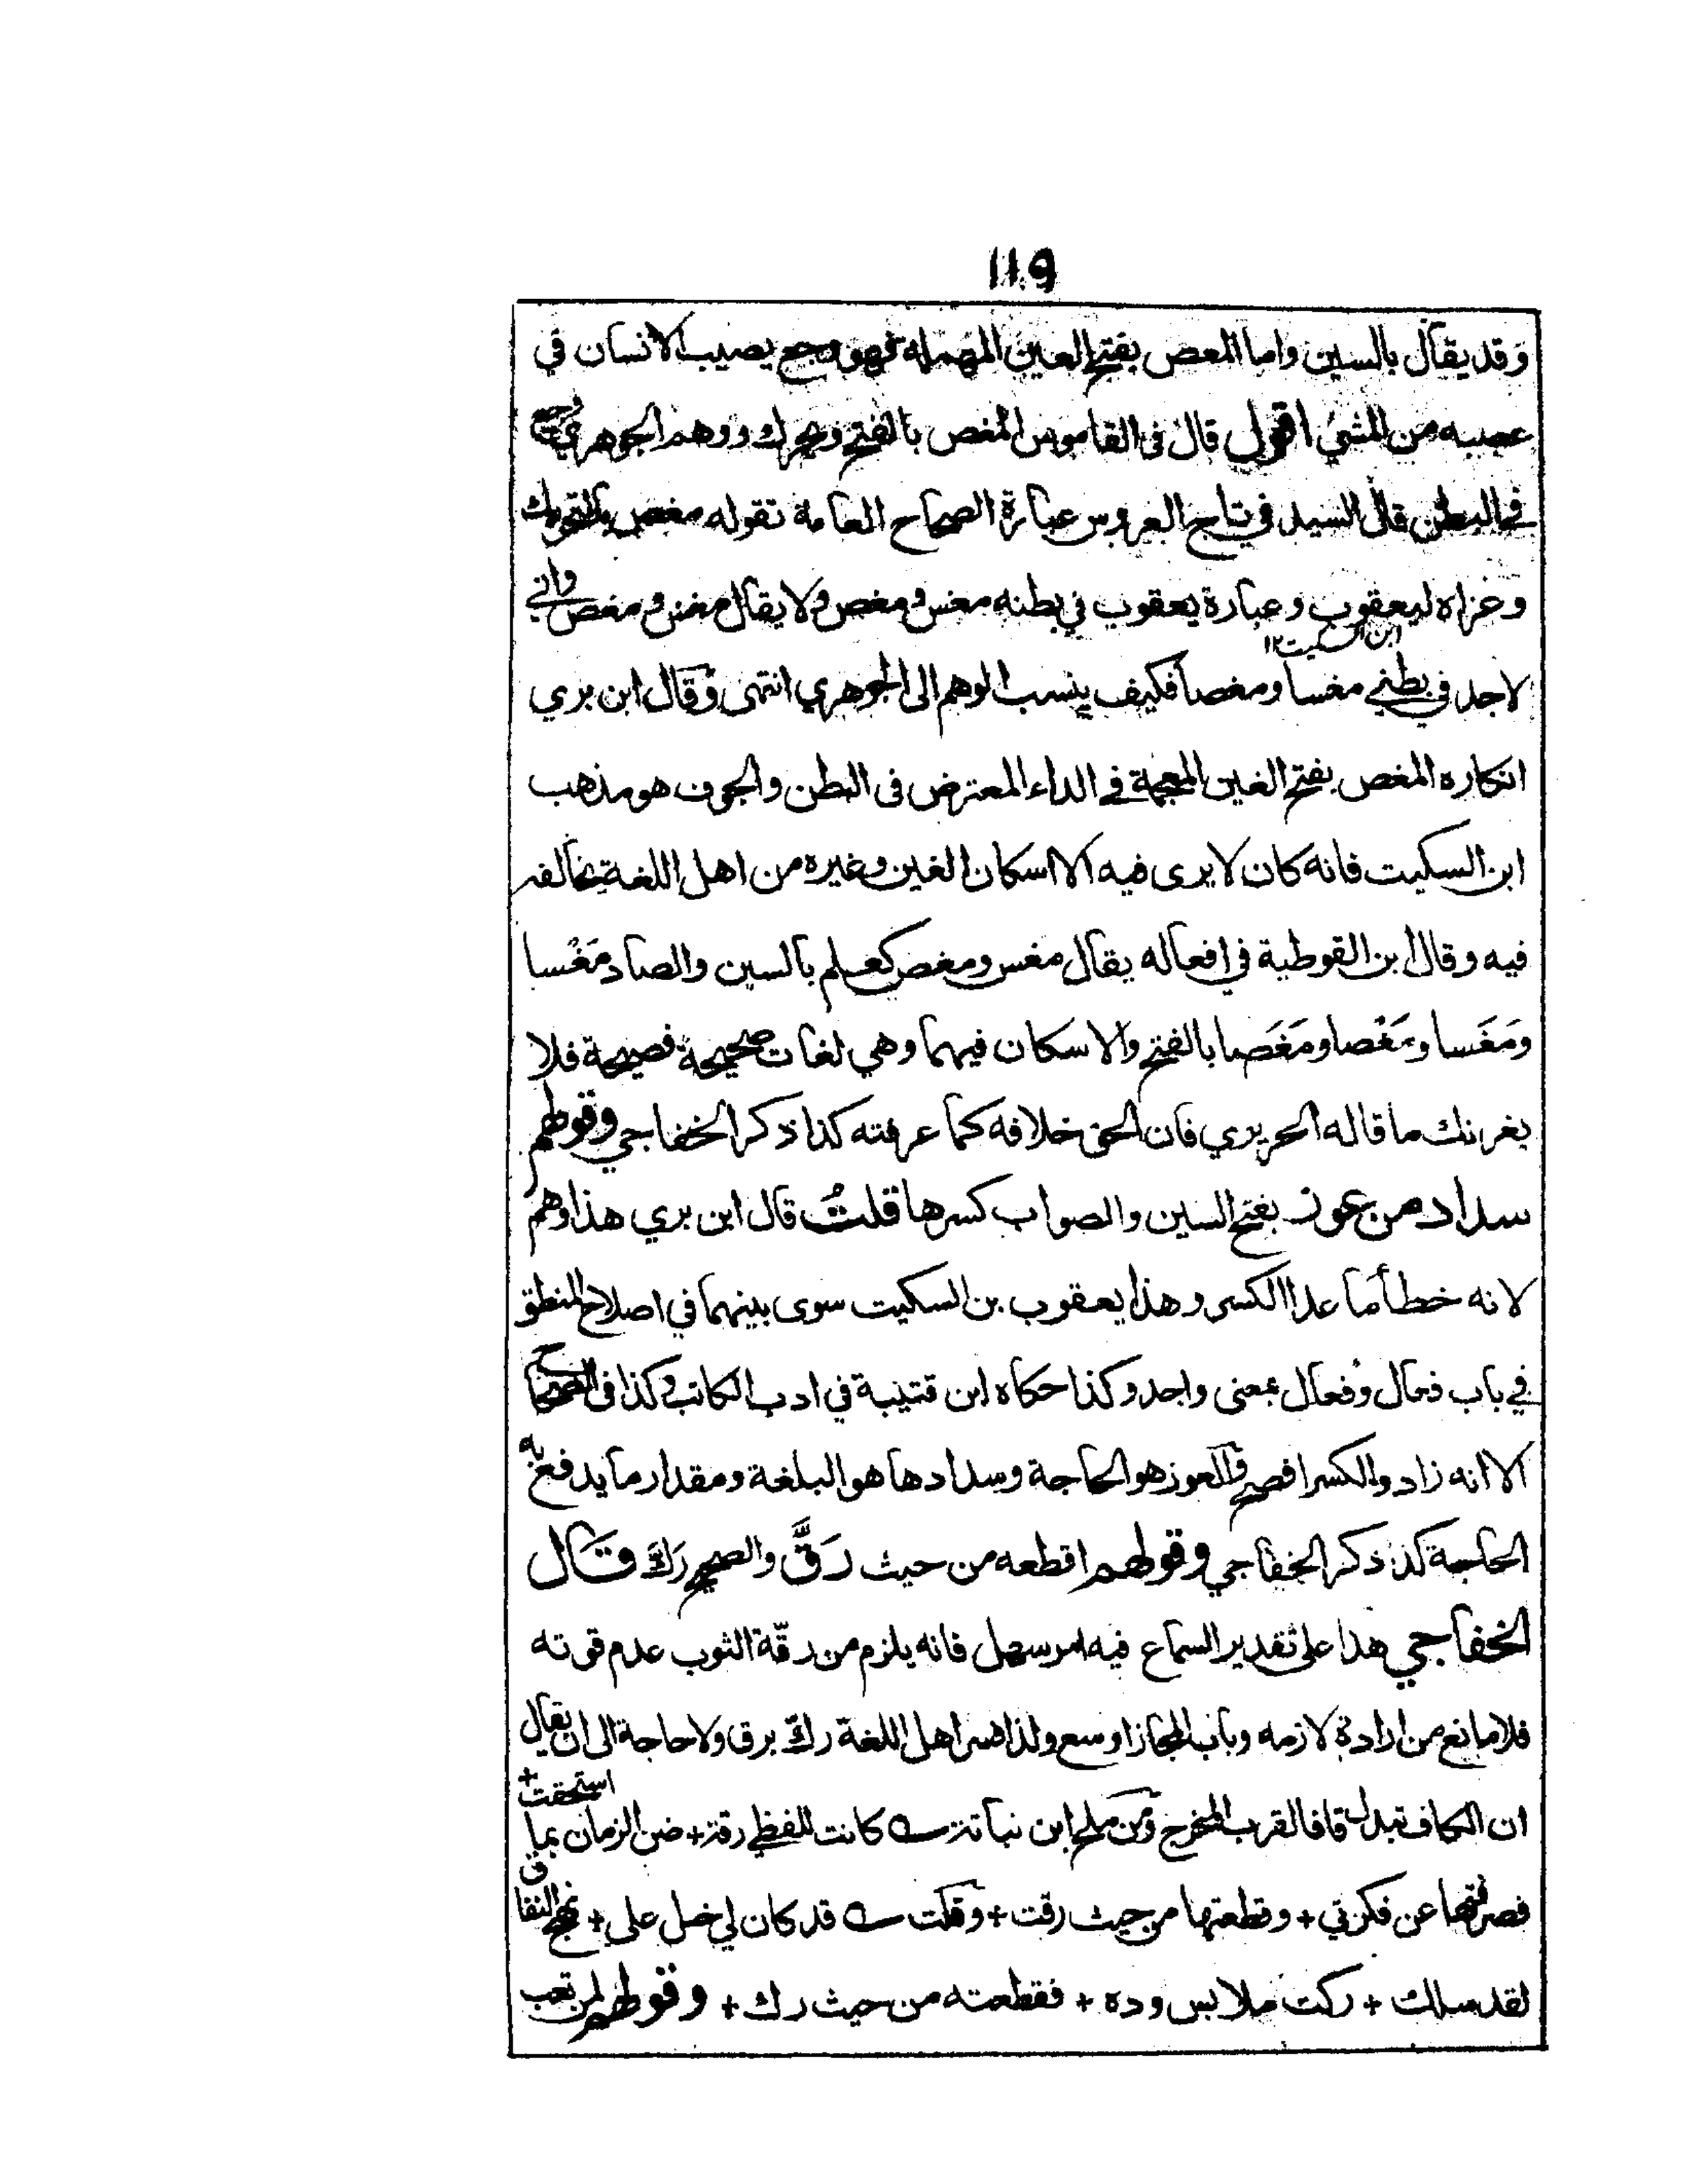 119
وقد يقال بالسين واما المعص بفتح العين المهملة فهو وجع يصيب الانسان في
عصبه من المشي اقول قال في القاموس المغص بالفتح ويحرك ووهم الجوهري وجع
في البطن قال السيد في تاج العروس عبارة الصحاح العامة تقوله مغص بالتحريك
وعزاه ليعقوب وعبارة يعقوب في بطنه مغس ومغص ولا يقال مغس ومغص واني
ابن السكيت ١٢
لاجد في بطني مغسا ومغصا فكيف ينسب الوهم الى الجوهري انتهى وقال ابن بري
انكاره المغص بفتح الغين المعجمة في الداء المعترض في البطن والجوف هو مذهب
ابن السكيت فانه كان لا يرى فيه الا اسكان الغين وغيره من اهل اللغة يخالفه
فيه وقال ابن القوطية في افعاله يقال مغس ومغص كعلم بالسين والصاد مَغْسا
ومَغَسا ومَغْصا ومَغَصا بالفتح والاسكان فيهما وهي لغات صحيحة فصيحة فلا
يغرنك ما قاله الحريري فان الحق خلافه كما عرفته كذا ذكر الخفاجي وقولهم
سداد من عوز بفتح السين والصواب كسرها قلتُ قال ابن بري هذا وهم
لانه خطأ ما عدا الكسر وهذا يعقوب بن السكيت سوى بينهما في اصلاح المنطق
في باب فعال وفعال بمعنى واحد وكذا حكاه ابن قتيبة في ادب الكاتب وكذا في الصحاح
الا انه زاد والكسر افصح والعوز هو الحاجة وسدادها هو البلغة ومقدار ما يدفع به
الحاجة كذا ذكر الخفاجي وقولهم اقطعه من حيث رَقَّ والصحيح رَكَّ قال
الخفاجي هذا على تقدير السماع فيه امر سهل فانه يلزم من رقّة الثوب عدم قوته
فلا مانع من ارادة لازمه وباب المجاز اوسع ولذا فسر اهل اللغة ركّ برق ولا حاجة الى ان يقال
ان الكاف تبدل قافا لقرب المخرج ومن ملح ابن نباتة كانت للفظي رقة + ضن الزمان بما استحقت +
فصرفتها عن فكرتي + وقطعتها من حيث رقت + وقلت قد كان لي خل على + نهج النفاق
لقد سلك + ركت ملابس وده + فقطعته من حيث رك + وقولهم لمن تعب